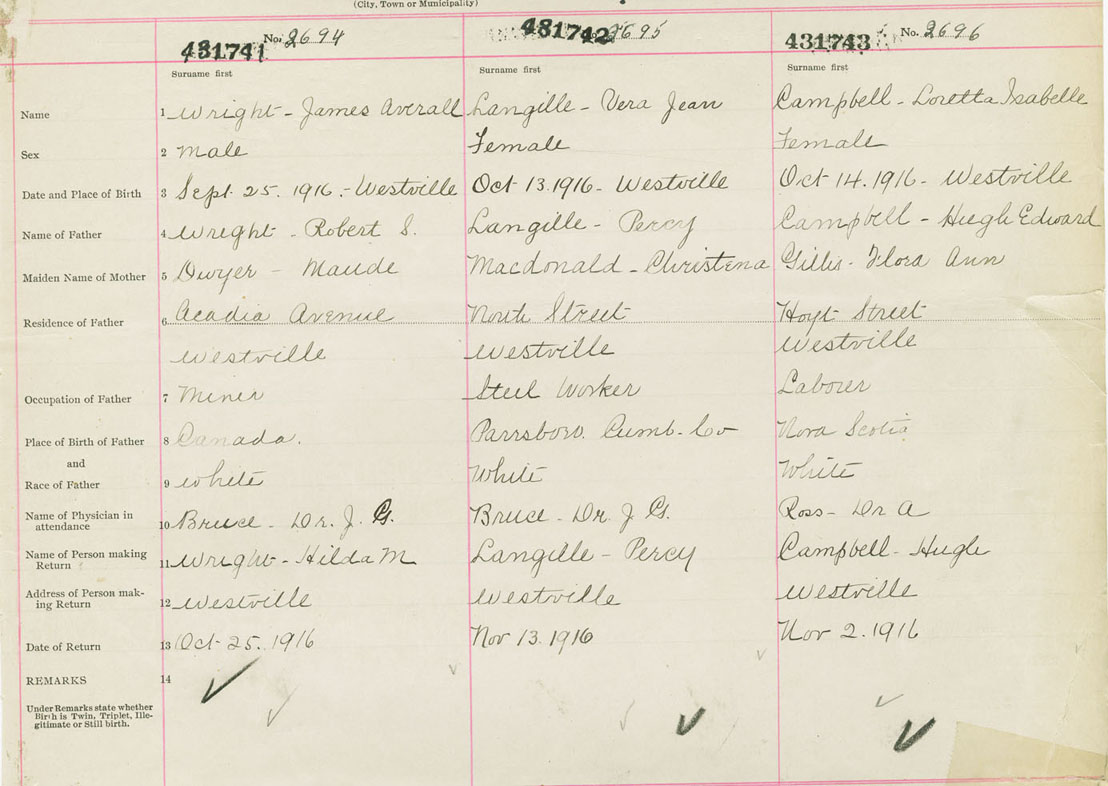 (City, Town or Municipality)
431741 No. 2694 431742 2695 431743 No. 2696
Surname first Surname first Surname first
Name 1 Wright - James Averall Langille - Vera Jean Campbell - Loretta Isabelle
Sex 2 Male Female Female
Date and Place of Birth 3 Sept 25. 1916 - Westville Oct 13. 1916 - Westville Oct 14. 1916 - Westville
Name of Father 4 Wright - Robert S. Langille - Percy Campbell - Hugh Edward
Maiden Name of Mother 5 Dwyer - Maude Macdonald - Christena Gillis - Flora Ann
Residence of Father 6 Acadia Avenue North Street Hoyt Street
Westville Westville Westville
Occupation of Father 7 Miner Steel Worker Laborer
Place of Birth of Father 8 Canada. Parrsboro. Cumb. Co Nova Scotia
and
Race of Father 9 White White White
Name of Physician in
attendance 10 Bruce - Dr. J. G. Bruce - Dr J G. Ross - Dr A
Name of Person making
Return 11 Wright - Hilda M Langille - Percy Campbell - Hugh
Address of Person mak-
ing Return 12 Westville Westville Westville
Date of Return 13 Oct 25. 1916 Nov 13. 1916 Nov 2. 1916
REMARKS 14
Under Remarks state whether
Birth is Twin, Triplet, Ille-
gitimate or Still birth.